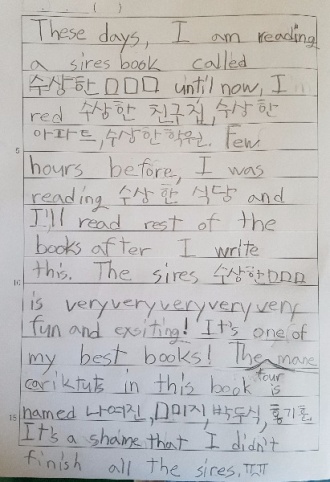 ( )
These days, I am reading
a sires book called
수상한 □□□ until now, I
red 수상한 친구집, 수상한
아파트, 수상한 학원. Few
5
hours before, I was
reading 수상한 식당 and
I'll read rest of the
books after I write
this. The sires 수상한 □□□
10
is veryveryveryveryvery
fun and exsiting! It's one of
my best books! The mane
cariktuts in this book four is
15
named 나여진, □미지, 박두식, 홍기훈
It's a shame that I didn't
finish all the sires. ㅠㅠ